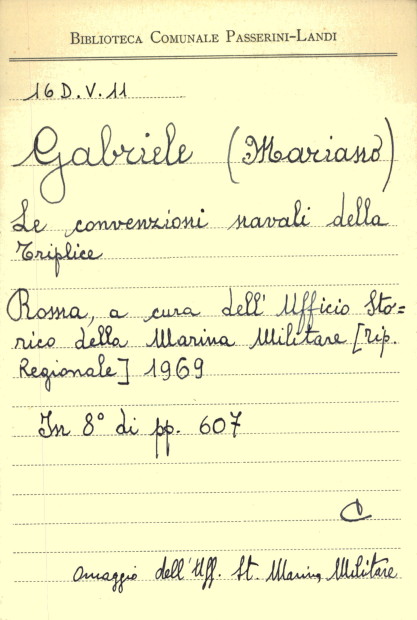 BIBLIOTECA COMUNALE PASSERINI-LANDI
16 D.V.11
Gabriele (Mariano)
Le convenzioni navali della
Triplice
Roma, a cura dell'Ufficio Sto=
rico della Marina Militare [tip.
Regionale] 1969
In 8° di pp. 607
C
omaggio dell'Uff. St. Marina Militare